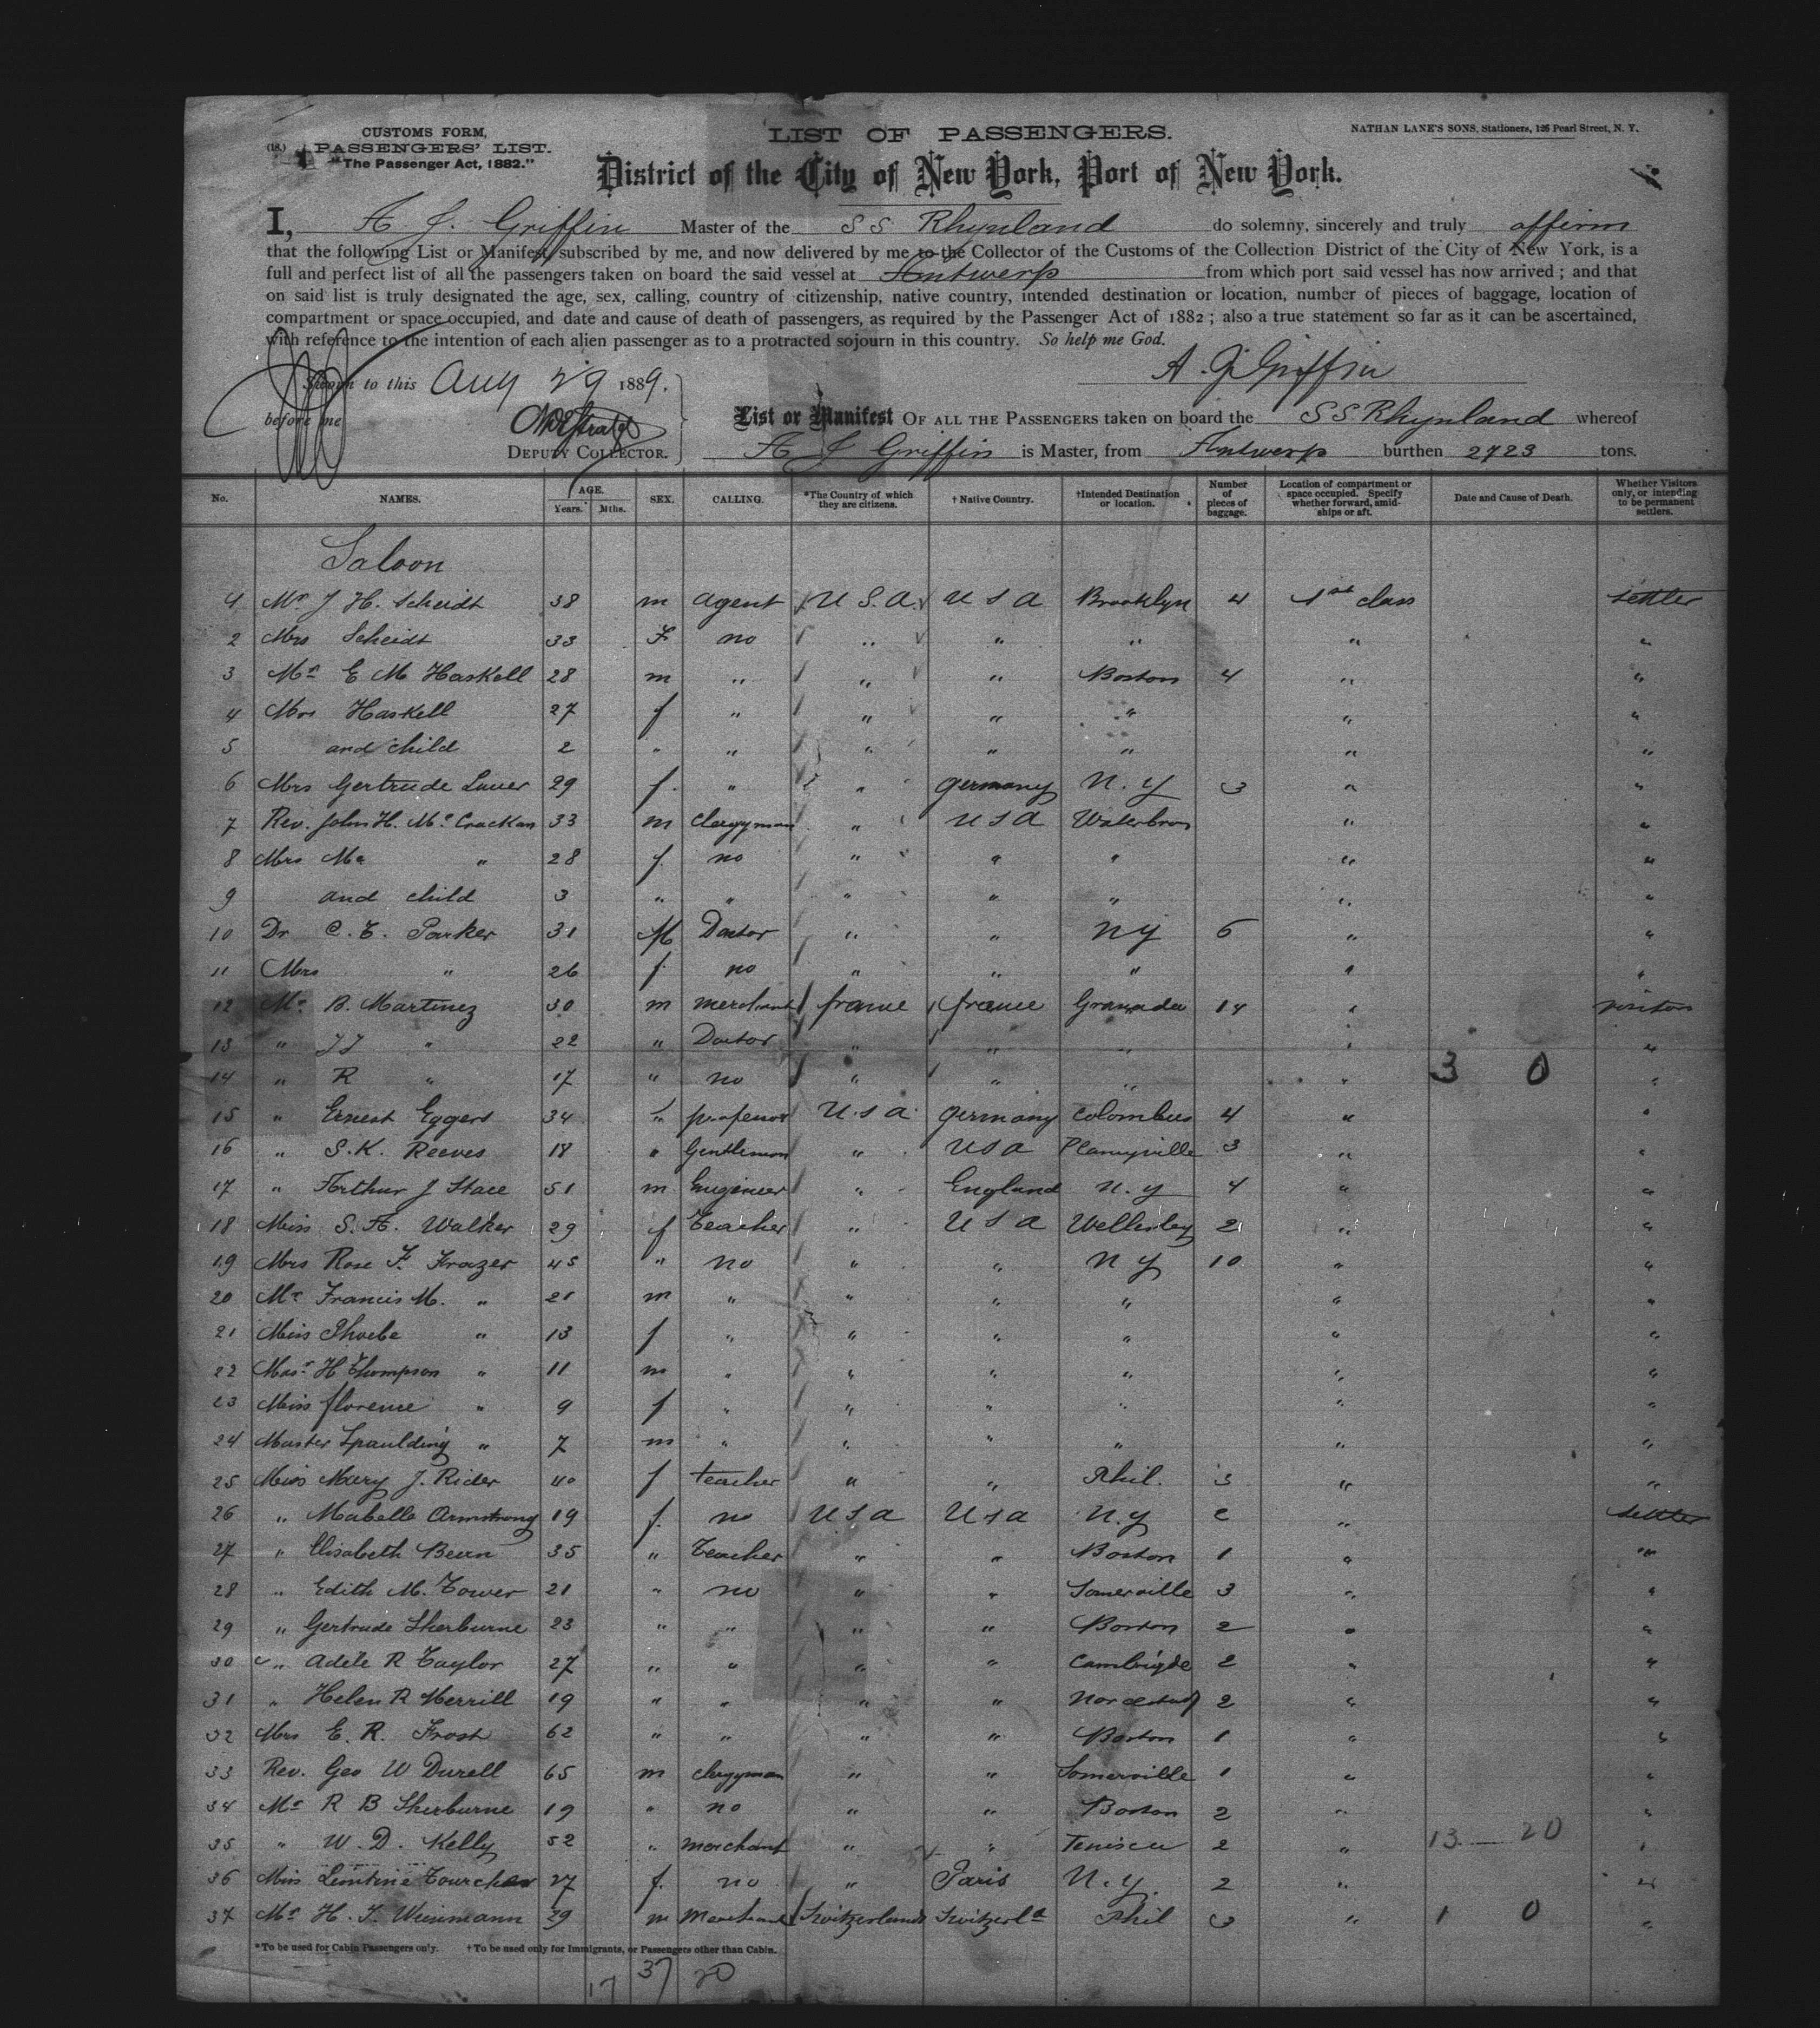 CUSTOMS FORM,
(18.) PASSENGERS' LIST.
"The Passenger Act, 1882."
LIST OF PASSENGERS.
NATHAN LANE'S SONS, Stationers, 126 Pearl Street, N. Y.
District of the City of New York, Port of New York.
I, A J. Griffin Master of the S S Rhynland do solemny, sincerely and truly affirm
that the following List or Manifest, subscribed by me, and now delivered by me to the Collector of the Customs of the Collection District of the City of New York, is a
full and perfect list of all the passengers taken on board the said vessel at Antwerp from which port said vessel has now arrived; and that
on said list is truly designated the age, sex, calling, country of citizenship, native country, intended destination or location, number of pieces of baggage, location of
compartment or space occupied, and date and cause of death of passengers, as required by the Passenger Act of 1882; also a true statement so far as it can be ascertained,
with reference to the intention of each alien passenger as to a protracted sojourn in this country. So help me God.
A. J. Griffin
Sworn to this Aug 29 1889.
before me
DEPUTY COLLECTOR.
List or Manifest OF ALL THE PASSENGERS taken on board the S S Rhynland whereof
A J Griffin is Master, from Antwerp burthen 2723 tons.
No. NAMES. AGE. Years. Mths. SEX. CALLING. *The Country of which they are citizens. †Native Country. †Intended Destination or location. Number of pieces of baggage. Location of compartment or space occupied. Specify whether forward, amidships or aft. Date and Cause of Death. Whether Visitors only, or intending to be permanent settlers.
Saloon
1 Mr J H. Scheidt 38 m agent U S. A U S A Brooklyn 4 1st class settler
2 Mrs Scheidt 33 F no " " " " "
3 Mr E M Haskell 28 m " " " Boston 4 " "
4 Mrs Haskell 27 f " " " " " "
5 and child 2 " " " " " " "
6 Mrs Gertrude Lauer 29 f. " " germany N. Y 3 " "
7 Rev. John H. Mc Crackan 33 m Clergyman " U S A " "
8 Mrs Mc " 28 f. no " " " " "
9 and child 3 " " " " " " "
10 Dr C. E. Parker 31 M Doctor " " NY 6 " "
11 Mrs " 26 f. no " " " " "
12 Mr B. Martinez 30 m merchant france france Granada 14 " visitors
13 " J J " 22 " Doctor " " " " "
14 " R " 17 " no " " " " 3 0 "
15 " Ernest Eggers 34 " professor U.S A germany Colombus 4 " "
16 " S. K. Reeves 18 " Gentleman " USA 3 " "
17 " Arthur J Stace 51 m Engineer " England N. Y 4 " "
18 Miss S. A. Walker 29 f teacher " U S A Wellesley 2 " "
19 Mrs Rose F. Frazer 45 " no " " N Y 10 " "
20 Mr Francis M. " 21 m " " " " " "
21 Miss Phoebe " 13 f " " " " " "
22 Masr H Thompson " 11 m " " " " " "
23 Miss florence " 9 f " " " " " "
24 Master Spaulding " 7 m " " " " " "
25 Miss Mary J. Rider 40 f teacher " " Phil. 3 " "
26 " Mabelle Armstrong 19 f. no U S A U S A N. Y 2 " settler
27 " Elisabeth Bean 35 " Teacher " " Boston 1 " "
28 " Edith M. Tower 21 " no " " Somerville 3 " "
29 " Gertrude Sherburne 23 " " " " Boston 2 " "
30 " Adele R Taylor 27 " " " " Cambrigde 2 " "
31 " Helen R Merrill 19 " " " " 2 " "
32 Mrs E. R. Frost 62 " " " " Boston 1 " "
33 Rev. Geo W Durell 65 m clergyman " " Somerville 1 " "
34 Mr R B Sherburne 19 " no " " Boston 2 " "
35 " W. D. Kelly 52 " merchant " " 2 " 13 — 20 "
36 Miss 27 f. no " Paris N. Y. 2 " "
37 Mr H. J. Weinmann 29 m Merchant Switzerland Switzerld Phil 3 " 1 0 "
*To be used for Cabin Passengers only. †To be used only for Immigrants, or Passengers other than Cabin.
17 37 20